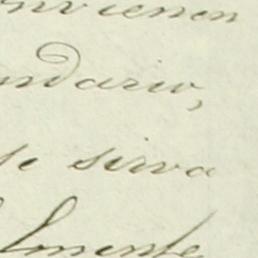 nvienen
ndario,
se sirva
lmente